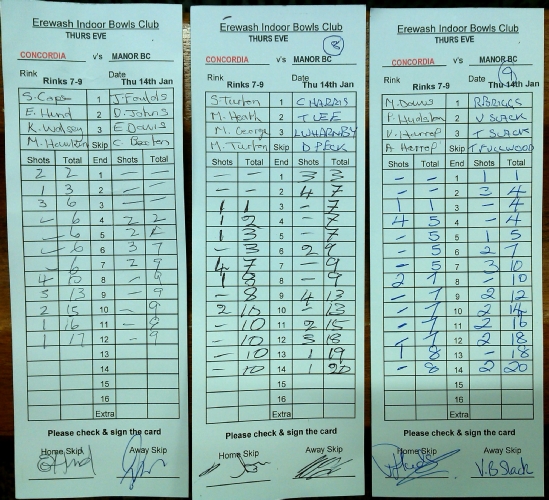 Erewash Indoor Bowls Club
THURS EVE
CONCORDIA v's MANOR BC
Rink Date
Rinks 7-9 Thu 14th Jan
S. Cope 1 J. Foulds
E. Hund 2 D. Johns
K. Wolsey 3 E Davis
M. Hawkin Skip C. Barton
Shots Total End Shots Total
2 2 1
1 3 2
3 6 3
- 6 4 2 2
- 6 5 2
- 6 6 3 7
- 6 7 2 9
4 10 8 - 9
3 13 9 - 9
2 15 10 - 9
1 16 11 - 9
1 17 12 - 9
13
14
15
16
Extra
Please check & sign the card
Home Skip Away Skip
Erewash Indoor Bowls Club
THURS EVE 8
CONCORDIA v's MANOR BC
Rink Date
Rinks 7-9 Thu 14th Jan
S. Turton 1 C HARRIS
M. Heath 2 T LEE
M. George 3
M. Turton Skip D PECK
Shots Total End Shots Total
- - 1 3 3
- - 2 4 7
1 1 3 - 7
1 2 4 - 7
1 3 5 - 7
- 3 6 2 9
4 7 7 - 9
1 8 8 - 9
- 8 9 4 13
2 10 10 - 13
- 10 11 2 15
- 10 12 3 18
- 10 13 1 19
- 10 14 1 20
15
16
Extra
Please check & sign the card
Home Skip Away Skip
Erewash Indoor Bowls Club
THURS EVE
CONCORDIA v's MANOR BC
Rink Date 9
Rinks 7-9 Thu 14th Jan
M. Davis 1 R BRIGGS
P. Hudston 2 V SLACK
V. Harrop 3 T SLACK
A Harrop Skip T. FULLWOOD
Shots Total End Shots Total
- - 1 1 1
- - 2 3 4
1 1 3 - 4
4 5 4 - 4
- 5 5 1 5
- 5 6 2 7
- 5 7 3 10
2 7 8 - 10
- 7 9 2 12
- 7 10 2 14
- 7 11 2 16
- 7 12 2 18
1 8 13 - 18
- 8 14 2 20
15
16
Extra
Please check & sign the card
Home Skip Away Skip
V.B Slack